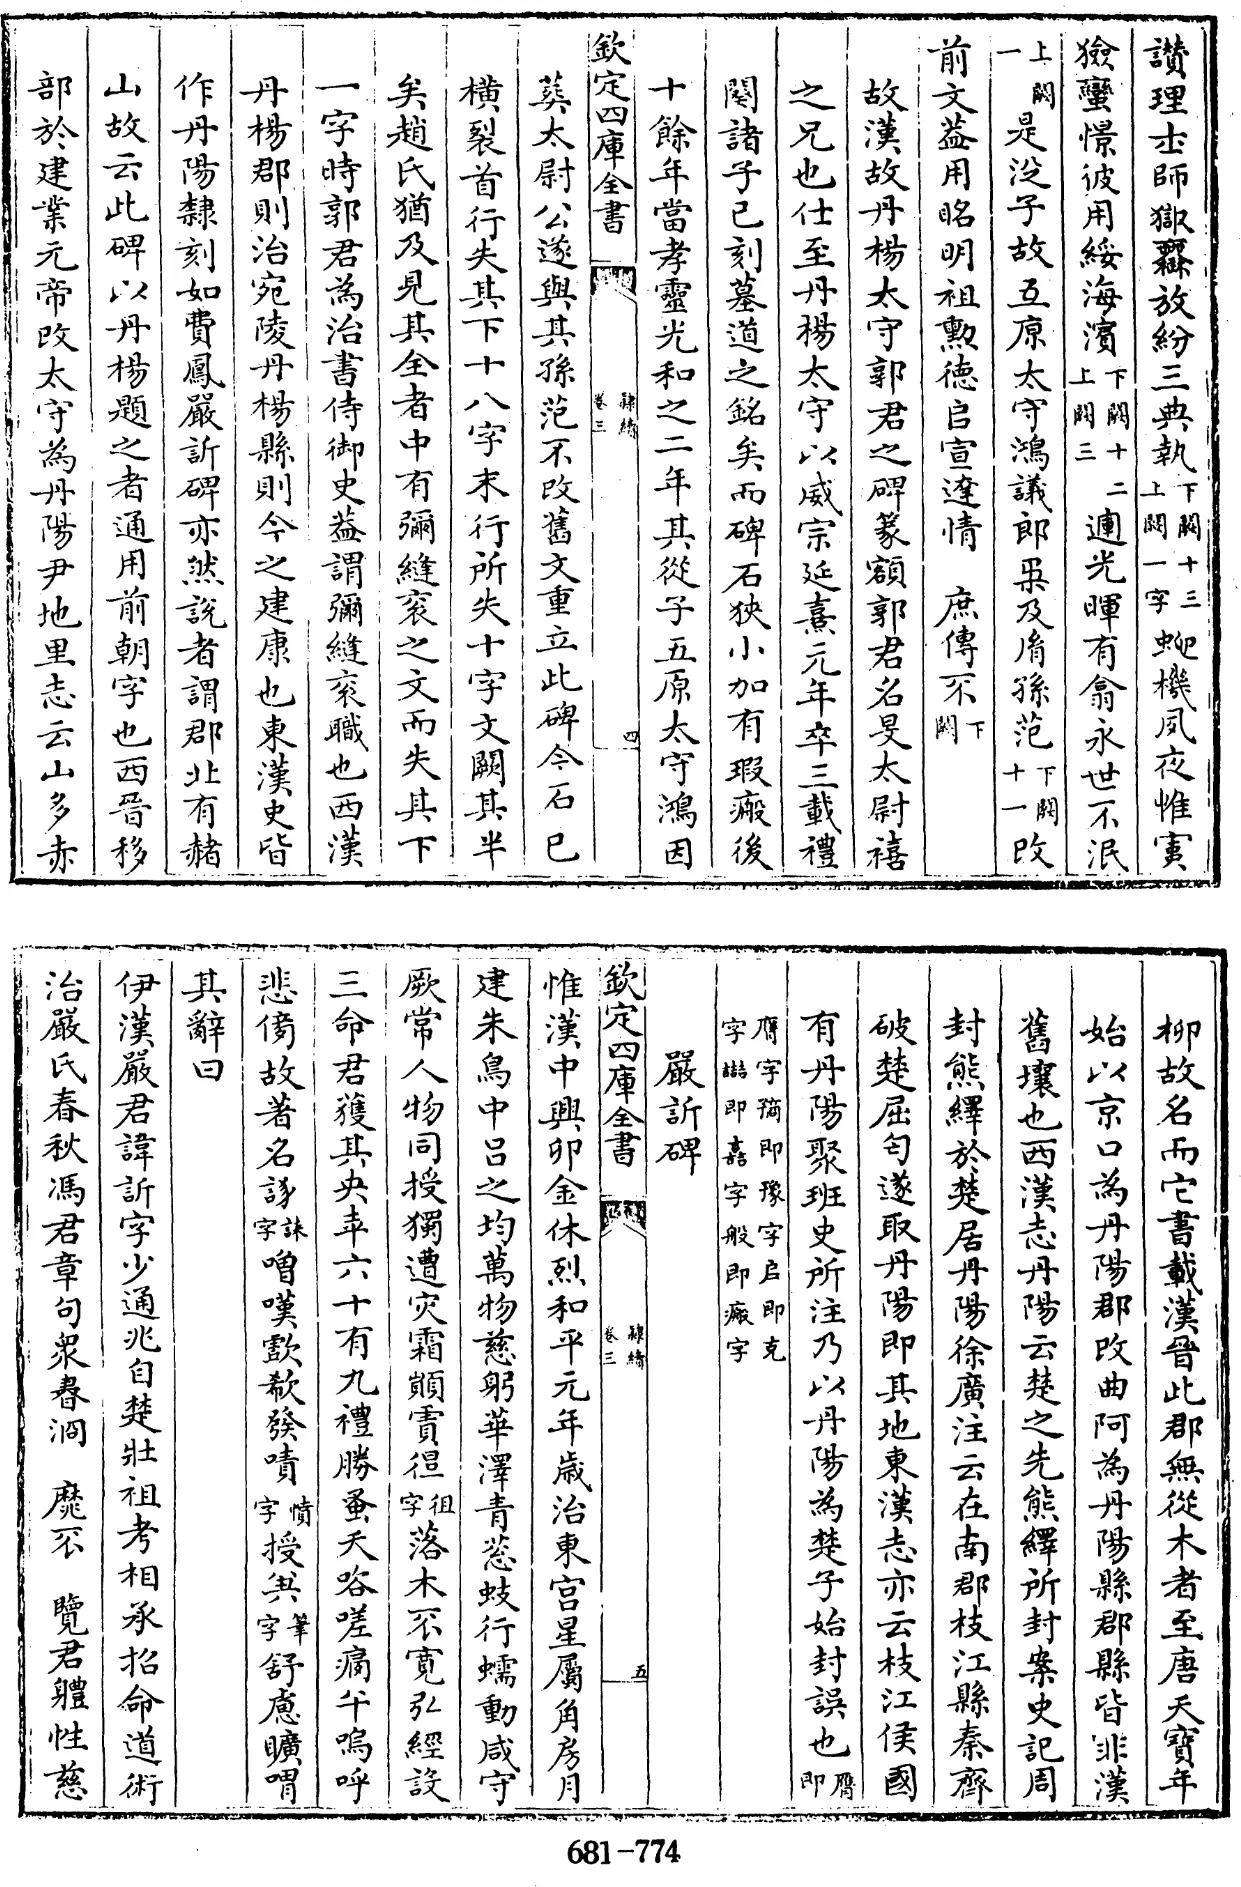 讃理士師獄羉放紛三典執下闕十三上闕一字虵機夙夜惟寅
獫蠻憬彼用綏海濱下闕十二上闕三連光暉有翕永世不泯
上闕一是沒子故五原太守鴻議郎㮚及脩孫范下闕十一改
前文葢用昭明祖勲德启宣遼情 庶傳不下闕
故漢故丹楊太守郭君之碑篆額郭君名旻太尉禧
之兄也仕至丹楊太守以威宗延熹元年卒三載禮
闋諸子已刻墓道之銘矣而碑石狹小加有瑕瘢後
十餘年當孝靈光和之二年其從子五原太守鴻因
欽定四庫全書 隸續 卷三 四
葬太尉公遂與其孫范不改舊文重立此碑今石已
橫裂首行失其下十八字末行所失十字文闕其半
矣趙氏猶及見其全者中有彌縫衮之文而失其下
一字時郭君為治書侍御史葢謂彌縫衮職也西漢
丹楊郡則治宛陵丹楊縣則今之建康也東漢史皆
作丹陽隸刻如費鳳嚴訢碑亦然說者謂郡北有赭
山故云此碑以丹楊題之者通用前朝字也西晉移
部於建業元帝改太守為丹陽尹地里志云山多赤
柳故名而它書載漢晉此郡無從木者至唐天寶年
始以京口為丹陽郡改曲阿為丹陽縣郡縣皆非漢
舊壤也西漢志丹陽云楚之先熊繹所封案史記周
封熊繹於楚居丹陽徐廣注云在南郡枝江縣秦齊
破楚屈匄遂取丹陽即其地東漢志亦云枝江侯國
有丹陽聚班史所注乃以丹陽為楚子始封誤也膺即
膺字㺄即豫字启即克字譆即嘉字般即瘢字
嚴訢碑
欽定四庫全書 隸續 卷三 五
惟漢中興卯金休烈和平元年歲治東宫星屬角房月
建朱鳥中呂之均萬物慈躬華澤青葱蚑行蠕動咸守
厥常人物同授獨遭災霜顚霣徂徂字落木不寛弘經設
三命君獲其央年六十有九禮勝蚤夭咨嗟痛乎嗚呼
悲傷故著名誄誄字噌嘆歔欷發嘖憤字授筆筆字舒慮曠喟
其辭曰
伊漢嚴君諱訢字少通兆自楚壯祖考相承招命道術
治嚴氏春秋馮君章句衆書洞 靡不 覽君軆性慈
681-774